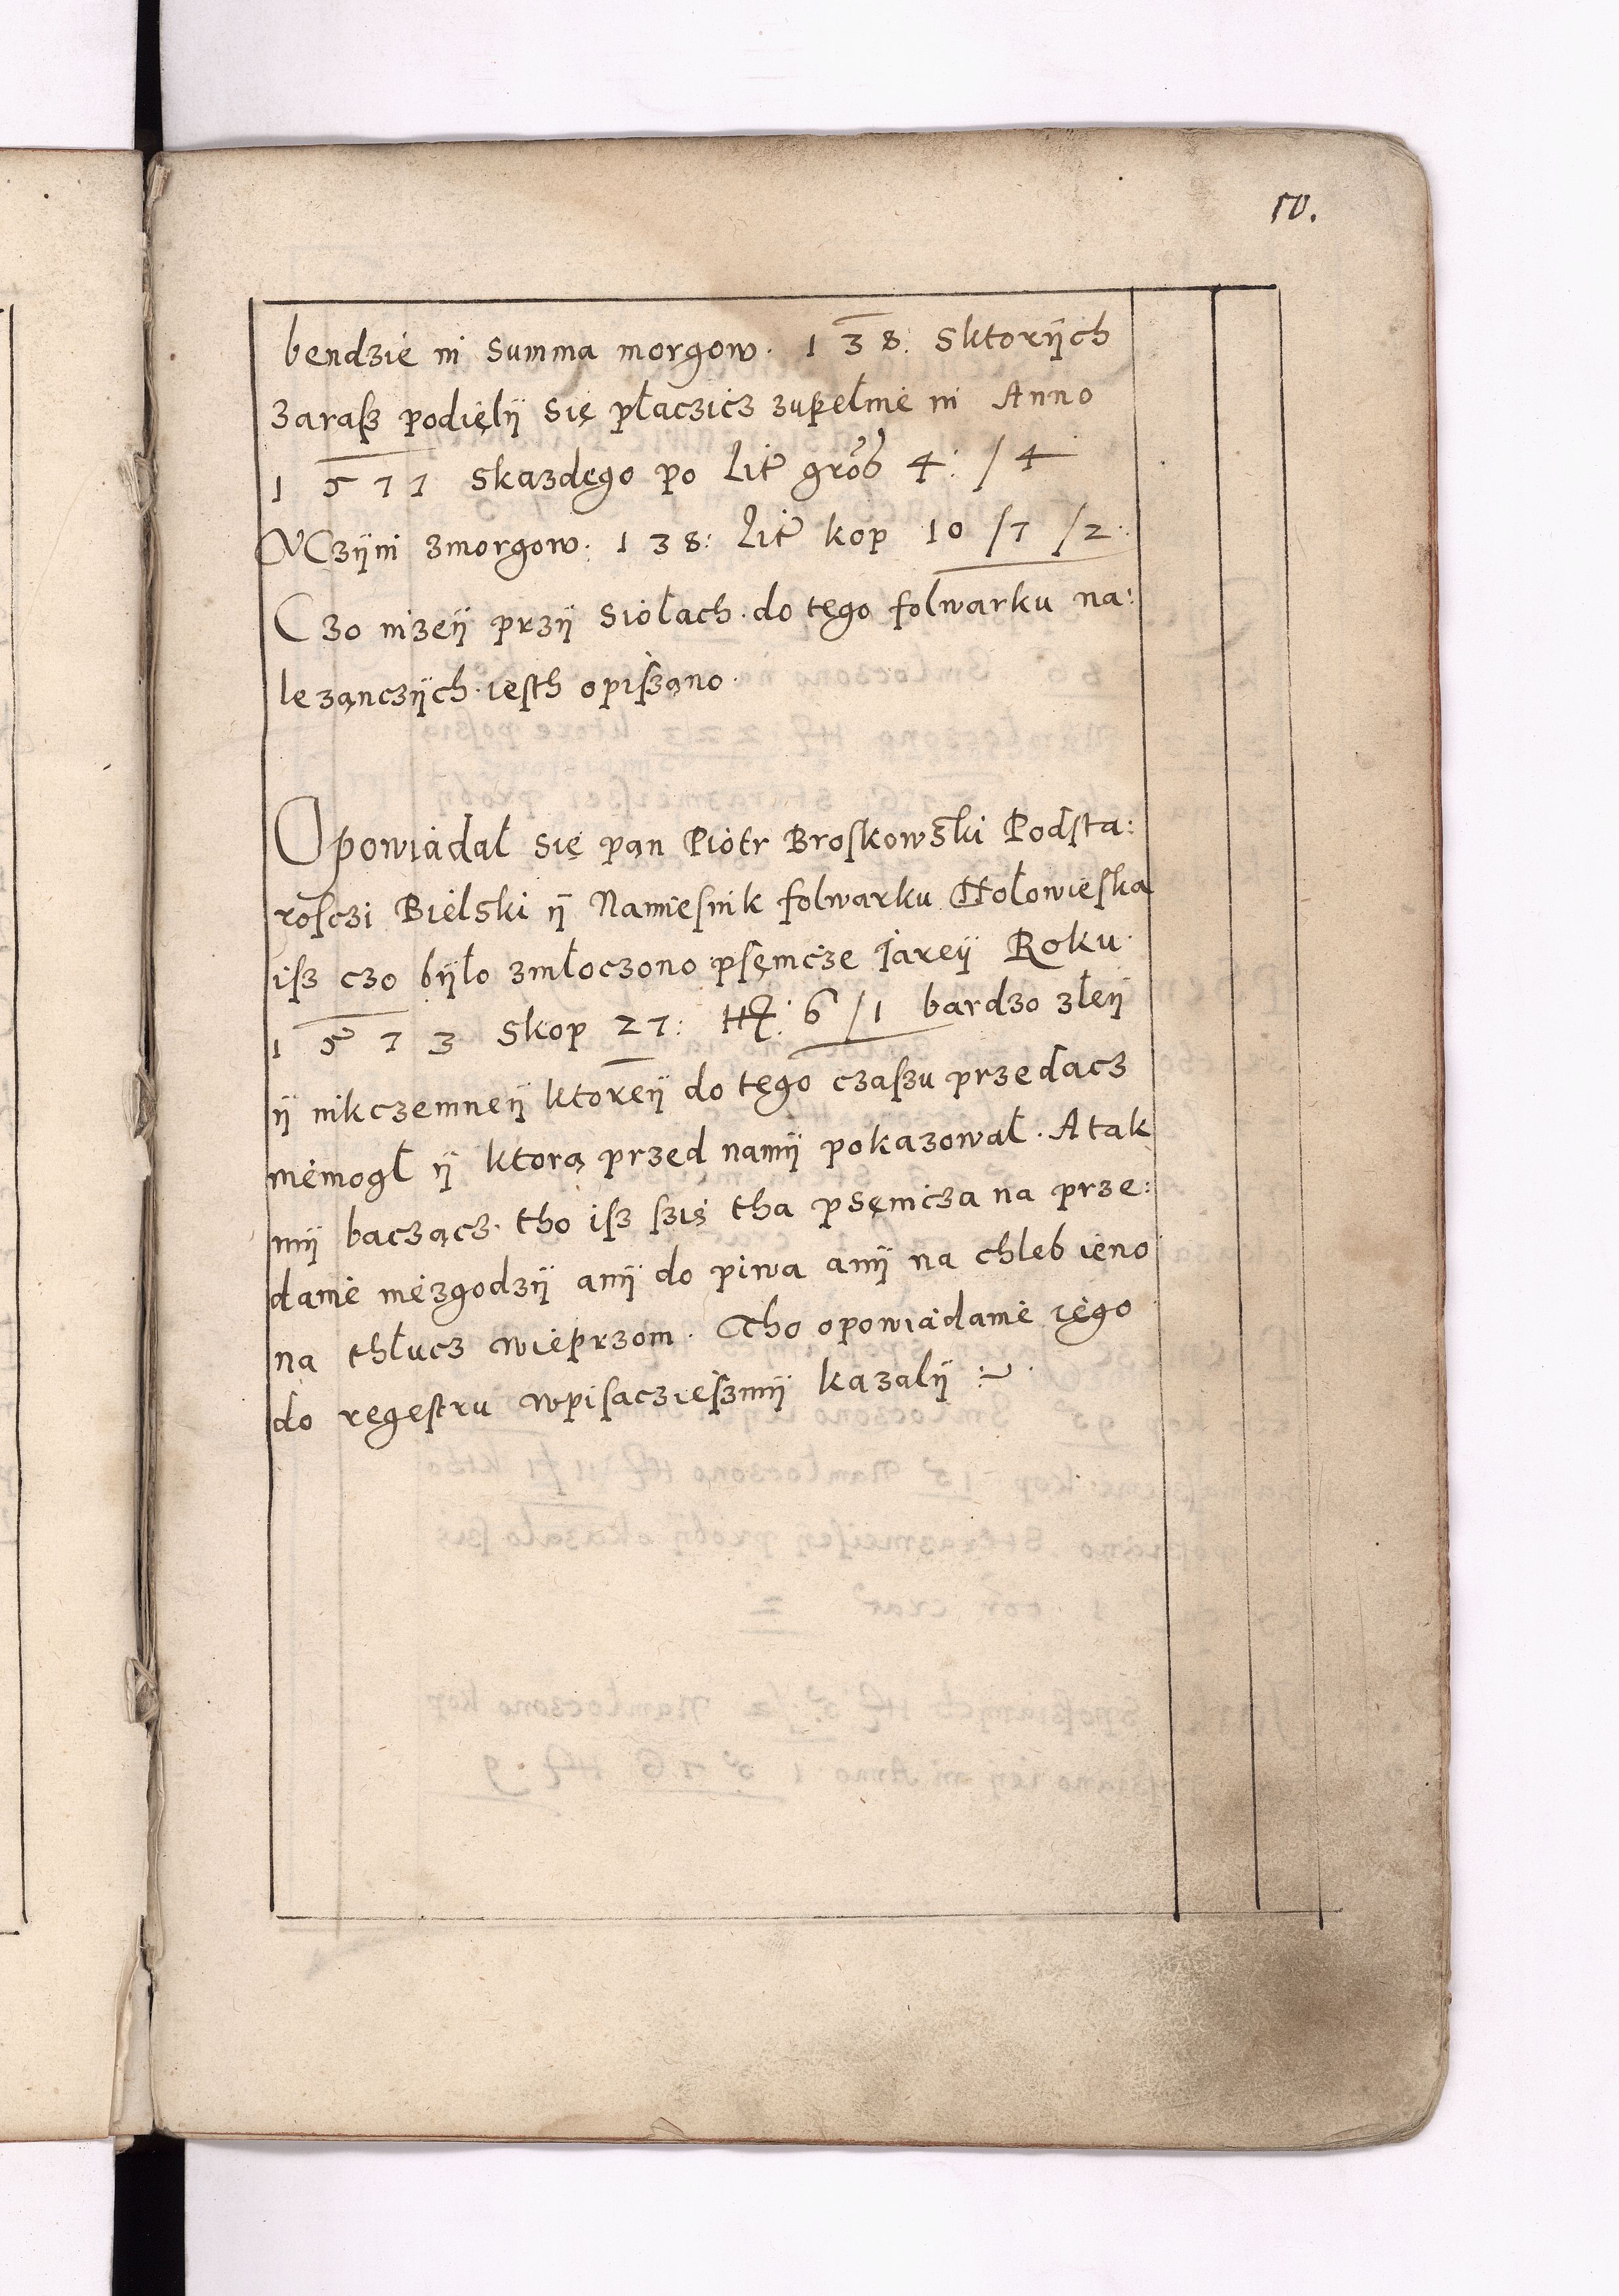 50.
bendzie in Summa morgow. 138. Sktorÿch
zarasz podięlÿ się płaczicz zupełnie in Anno
1577 Skazdego po Lit grosz 4: / 4
WCzÿni zmorgow. 138: Lit kop 10 /7 /2:
Czo nizeÿ przÿ Siołach. do tęgo folwarku na:
lezanczÿch. iesth opiszano.
Opowiadał się pan Piotr Broskowski Podsta:
rosczi Bielski ÿ Namiesnik folwarku Hołowieska
isz czo bÿło zmłoczono psęnicze Jareÿ Roku.
1573 Skop 27: 6 /1 bardzo złeÿ
ÿ nikczemneÿ ktoreÿ do tęgo czaszu przedacz
niemogł ÿ ktorą przed namÿ pokazował. A tak
mÿ bacząncz. tho isz szię tha psęnicza na prze:
danie niezgodzÿ anÿ do piwa anÿ na chleb ieno
na thłucz wieprzom. Tho opowiadanie iego
do regestru wpisaczieszmÿ kazalÿ